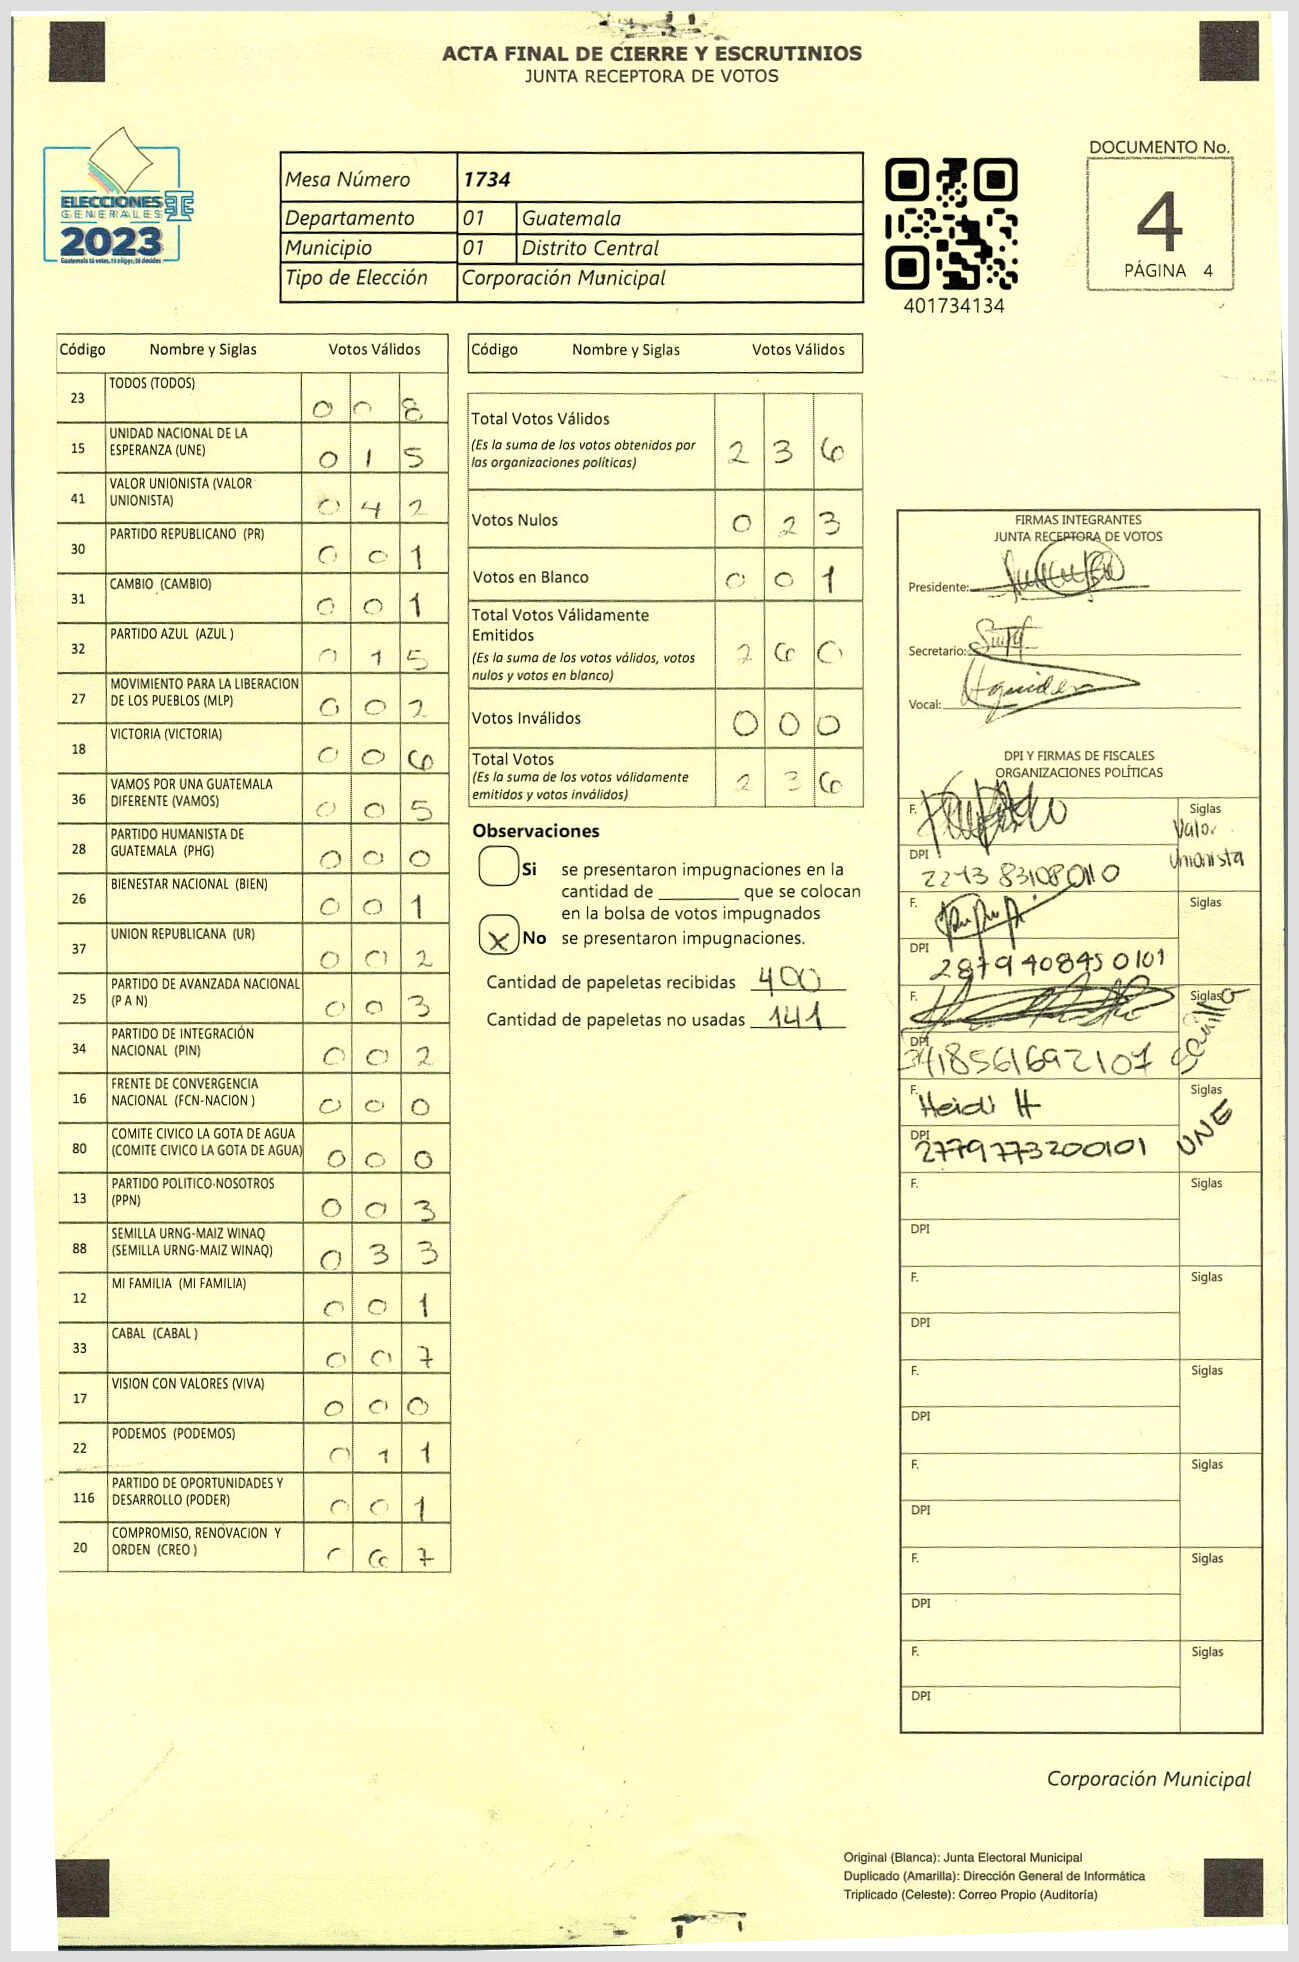 ACTA FINAL DE CIERRE Y ESCRUTINIOS
JUNTA RECEPTORA DE VOTOS
ELECCIONES
GENERALES
2023
Mesa Número 1734
Departamento 01 Guatemala
Municipio 01 Distrito Central
Tipo de Elección Corporación Municipal
401734134
DOCUMENTO No.
4
PÁGINA 4
Código Nombre y Siglas Votos Válidos
23 TODOS (TODOS) 0 0 8
15 UNIDAD NACIONAL DE LA
ESPERANZA (UNE) 0 1 5
41 VALOR UNIONISTA (VALOR
UNIONISTA) 0 4 2
30 PARTIDO REPUBLICANO (PR) 0 0 1
31 CAMBIO (CAMBIO) 0 0 1
32 PARTIDO AZUL (AZUL ) 0 1 5
27 MOVIMIENTO PARA LA LIBERACION
DE LOS PUEBLOS (MLP) 0 0 2
18 VICTORIA (VICTORIA) 0 0 6
36 VAMOS POR UNA GUATEMALA
DIFERENTE (VAMOS) 0 0 5
28 PARTIDO HUMANISTA DE
GUATEMALA (PHG) 0 0 0
26 BIENESTAR NACIONAL (BIEN) 0 0 1
37 UNION REPUBLICANA (UR) 0 0 2
25 PARTIDO DE AVANZADA NACIONAL
(P A N) 0 0 3
34 PARTIDO DE INTEGRACIÓN
NACIONAL (PIN) 0 0 2
16 FRENTE DE CONVERGENCIA
NACIONAL (FCN-NACION ) 0 0 0
80 COMITE CIVICO LA GOTA DE AGUA
(COMITE CIVICO LA GOTA DE AGUA) 0 0 0
13 PARTIDO POLITICO-NOSOTROS
(PPN) 0 0 3
88 SEMILLA URNG-MAIZ WINAQ
(SEMILLA URNG-MAIZ WINAQ) 0 3 3
12 MI FAMILIA (MI FAMILIA) 0 0 1
33 CABAL (CABAL ) 0 0 7
17 VISION CON VALORES (VIVA) 0 0 0
22 PODEMOS (PODEMOS) 0 1 1
116 PARTIDO DE OPORTUNIDADES Y
DESARROLLO (PODER) 0 0 1
20 COMPROMISO, RENOVACION Y
ORDEN (CREO ) 0 6 7
Código Nombre y Siglas Votos Válidos
Total Votos Válidos 2 3 6
(Es la suma de los votos obtenidos por
las organizaciones políticas)
Votos Nulos 0 2 3
Votos en Blanco 0 0 1
Total Votos Válidamente
Emitidos 2 6 0
(Es la suma de los votos válidos, votos
nulos y votos en blanco)
Votos Inválidos 0 0 0
Total Votos 2 3 6
(Es la suma de los votos válidamente
emitidos y votos inválidos)
Observaciones
Si se presentaron impugnaciones en la
cantidad de ________ que se colocan
en la bolsa de votos impugnados
X No se presentaron impugnaciones.
Cantidad de papeletas recibidas 400
Cantidad de papeletas no usadas 141
FIRMAS INTEGRANTES
JUNTA RECEPTORA DE VOTOS
Presidente:
Secretario:
Vocal:
DPI Y FIRMAS DE FISCALES
ORGANIZACIONES POLÍTICAS
F. Siglas
Valor
Unionista
DPI
F. Siglas
DPI 2879408450101
F. Siglas
Semilla
DPI 3418561692107
F. Heidi H Siglas
UNE
DPI 2779773200101
F. Siglas
DPI
F. Siglas
DPI
F. Siglas
DPI
F. Siglas
DPI
F. Siglas
DPI
F. Siglas
DPI
Corporación Municipal
Original (Blanca): Junta Electoral Municipal
Duplicado (Amarilla): Dirección General de Informática
Triplicado (Celeste): Correo Propio (Auditoría)